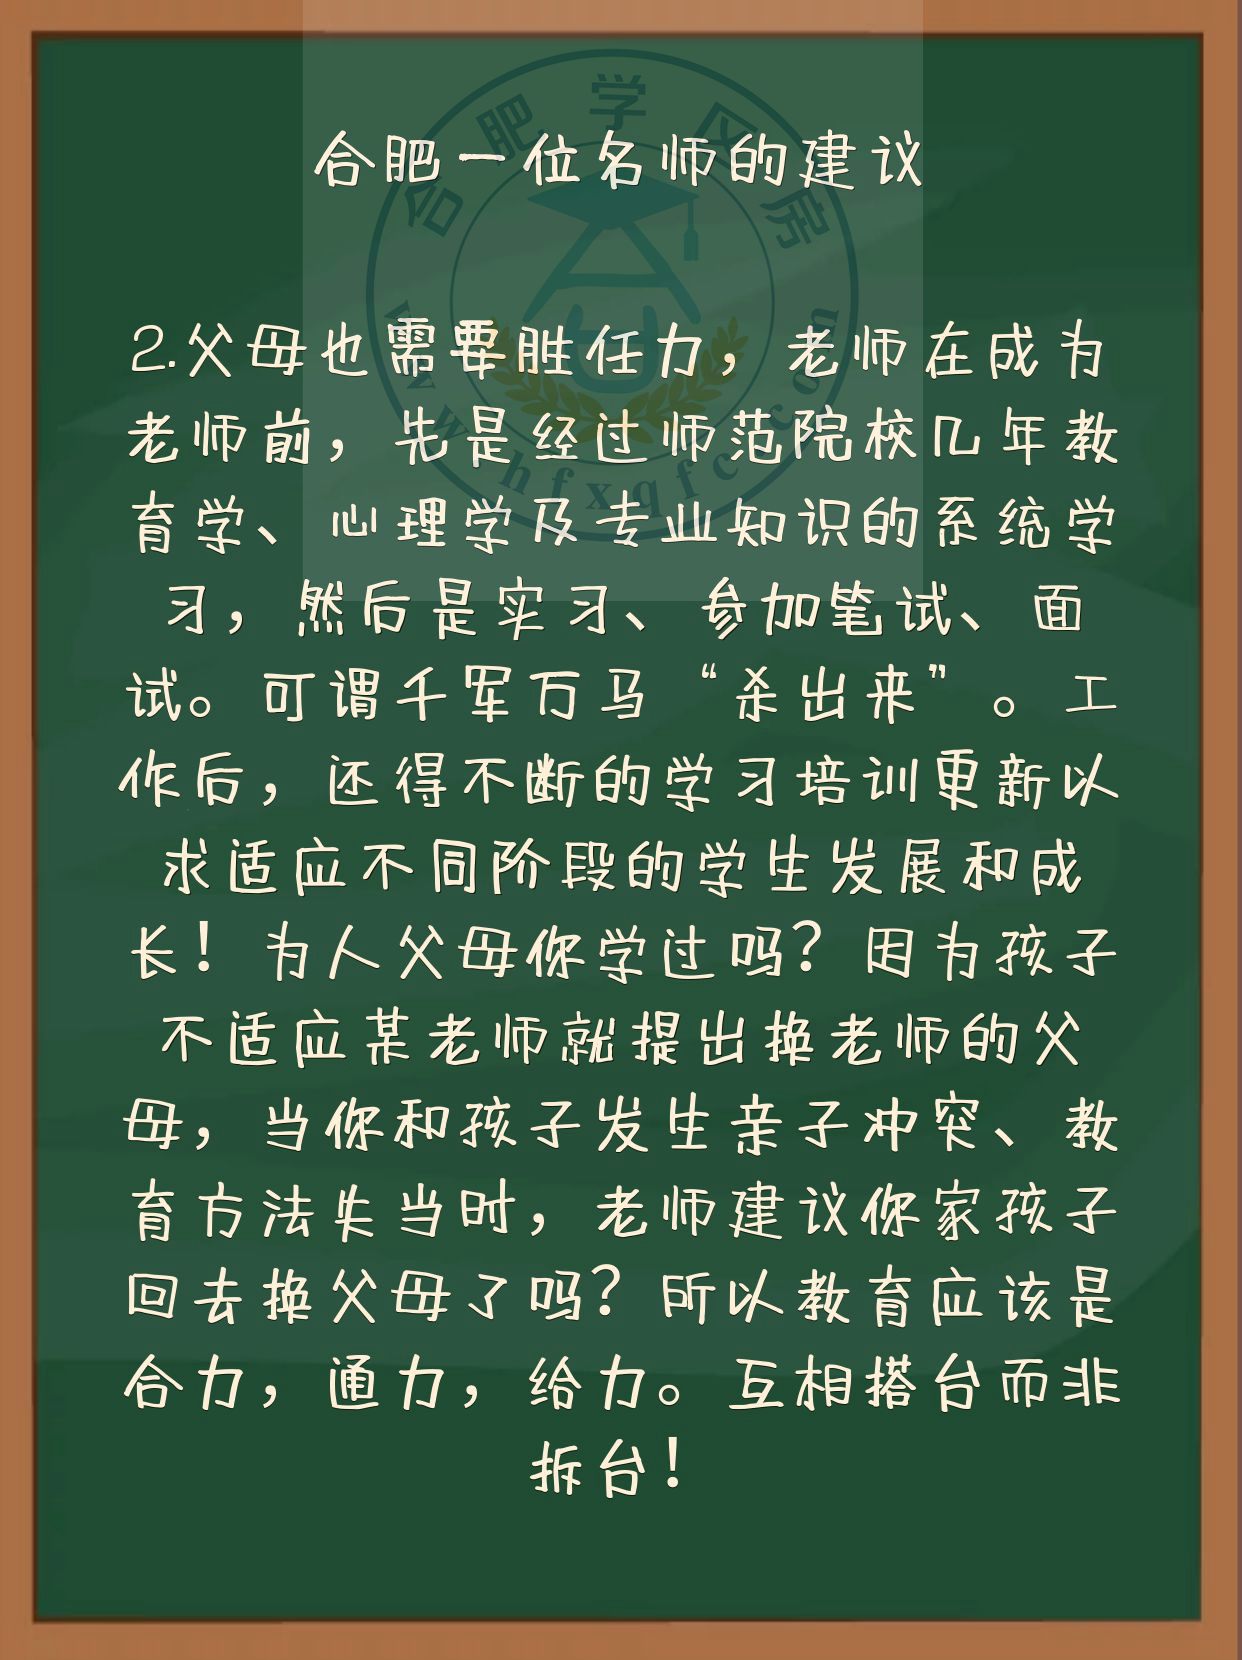 合肥学区房
www.hfxqfc.com
合肥一位名师的建议
2.父母也需要胜任力，老师在成为
老师前，先是经过师范院校几年教
育学、心理学及专业知识的系统学
习，然后是实习、参加笔试、面
试。可谓千军万马“杀出来”。工
作后，还得不断的学习培训更新以
求适应不同阶段的学生发展和成
长！为人父母你学过吗？因为孩子
不适应某老师就提出换老师的父
母，当你和孩子发生亲子冲突、教
育方法失当时，老师建议你家孩子
回去换父母了吗？所以教育应该是
合力，通力，给力。互相搭台而非
拆台！